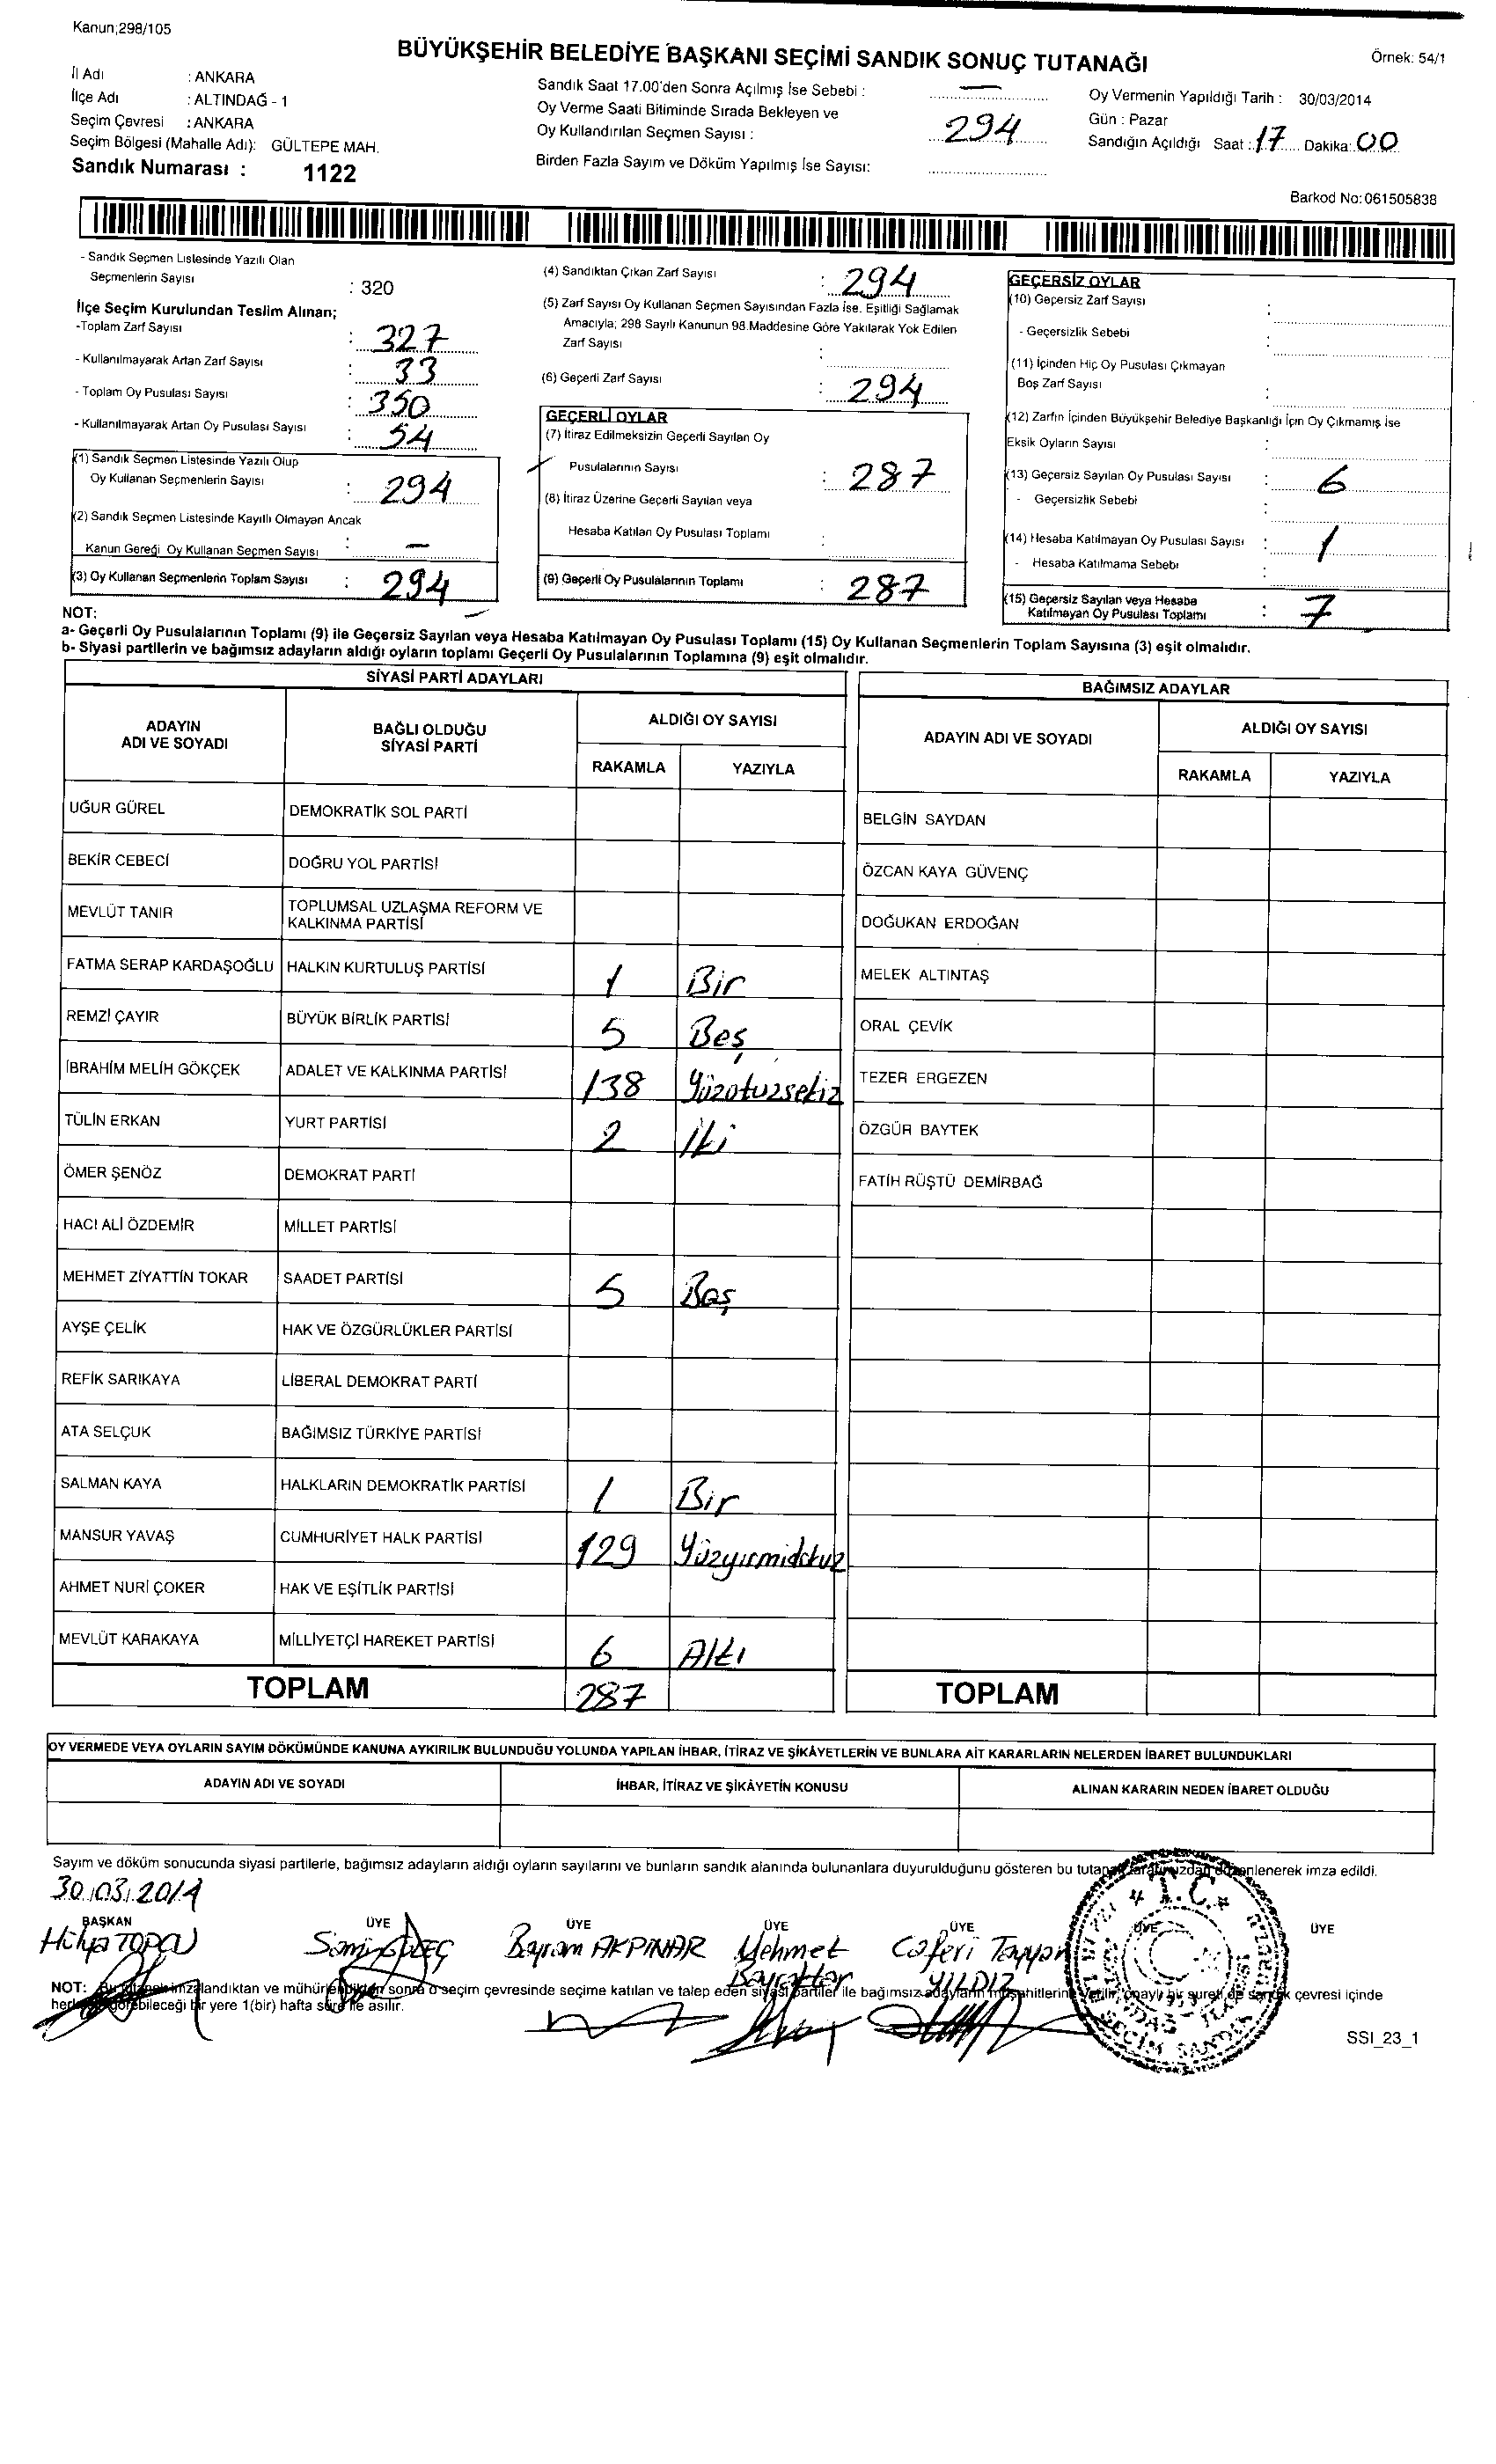 Kanun;298/105
BÜYÜKŞEHİR BELEDİYE BAŞKANI SEÇİMİ SANDIK SONUÇ TUTANAĞI
Örnek: 54/1
İl Adı : ANKARA
İlçe Adı : ALTINDAĞ - 1
Seçim Çevresi : ANKARA
Seçim Bölgesi (Mahalle Adı): GÜLTEPE MAH.
Sandık Numarası : 1122
Sandık Saat 17.00'den Sonra Açılmış İse Sebebi : —
Oy Verme Saati Bitiminde Sırada Bekleyen ve
Oy Kullandırılan Seçmen Sayısı : 294
Birden Fazla Sayım ve Döküm Yapılmış İse Sayısı:
Oy Vermenin Yapıldığı Tarih : 30/03/2014
Gün : Pazar
Sandığın Açıldığı Saat : 17 Dakika: 00
Barkod No: 061505838
- Sandık Seçmen Listesinde Yazılı Olan
Seçmenlerin Sayısı : 320
İlçe Seçim Kurulundan Teslim Alınan;
-Toplam Zarf Sayısı : 327
- Kullanılmayarak Artan Zarf Sayısı : 33
- Toplam Oy Pusulası Sayısı : 350
- Kullanılmayarak Artan Oy Pusulası Sayısı : 54
(1) Sandık Seçmen Listesinde Yazılı Olup
Oy Kullanan Seçmenlerin Sayısı : 294
(2) Sandık Seçmen Listesinde Kayıtlı Olmayan Ancak
Kanun Gereği Oy Kullanan Seçmen Sayısı : —
(3) Oy Kullanan Seçmenlerin Toplam Sayısı : 294
(4) Sandıktan Çıkan Zarf Sayısı : 294
(5) Zarf Sayısı Oy Kullanan Seçmen Sayısından Fazla İse. Eşitliği Sağlamak
Amacıyla; 298 Sayılı Kanunun 98.Maddesine Göre Yakılarak Yok Edilen
Zarf Sayısı :
(6) Geçerli Zarf Sayısı : 294
GEÇERLİ OYLAR
(7) İtiraz Edilmeksizin Geçerli Sayılan Oy
Pusulalarının Sayısı : 287
(8) İtiraz Üzerine Geçerli Sayılan veya
Hesaba Katılan Oy Pusulası Toplamı :
(9) Geçerli Oy Pusulalarının Toplamı : 287
GEÇERSİZ OYLAR
(10) Geçersiz Zarf Sayısı :
- Geçersizlik Sebebi :
(11) İçinden Hiç Oy Pusulası Çıkmayan
Boş Zarf Sayısı :
(12) Zarfın İçinden Büyükşehir Belediye Başkanlığı İçin Oy Çıkmamış İse
Eksik Oyların Sayısı :
(13) Geçersiz Sayılan Oy Pusulası Sayısı : 6
- Geçersizlik Sebebi :
(14) Hesaba Katılmayan Oy Pusulası Sayısı : 1
- Hesaba Katılmama Sebebi :
(15) Geçersiz Sayılan veya Hesaba
Katılmayan Oy Pusulası Toplamı : 7
NOT:
a- Geçerli Oy Pusulalarının Toplamı (9) ile Geçersiz Sayılan veya Hesaba Katılmayan Oy Pusulası Toplamı (15) Oy Kullanan Seçmenlerin Toplam Sayısına (3) eşit olmalıdır.
b- Siyasi partilerin ve bağımsız adayların aldığı oyların toplamı Geçerli Oy Pusulalarının Toplamına (9) eşit olmalıdır.
SİYASİ PARTİ ADAYLARI
ADAYIN ADI VE SOYADI
BAĞLI OLDUĞU SİYASİ PARTİ
ALDIĞI OY SAYISI
RAKAMLA YAZIYLA
UĞUR GÜREL DEMOKRATİK SOL PARTİ
BEKİR CEBECİ DOĞRU YOL PARTİSİ
MEVLÜT TANIR TOPLUMSAL UZLAŞMA REFORM VE
KALKINMA PARTİSİ
FATMA SERAP KARDAŞOĞLU HALKIN KURTULUŞ PARTİSİ 1 Bir
REMZİ ÇAYIR BÜYÜK BİRLİK PARTİSİ 5 Beş
İBRAHİM MELİH GÖKÇEK ADALET VE KALKINMA PARTİSİ 138 Yüzotuzsekiz
TÜLİN ERKAN YURT PARTİSİ 2 İki
ÖMER ŞENÖZ DEMOKRAT PARTİ
HACI ALİ ÖZDEMİR MİLLET PARTİSİ
MEHMET ZİYATTİN TOKAR SAADET PARTİSİ 5 Beş
AYŞE ÇELİK HAK VE ÖZGÜRLÜKLER PARTİSİ
REFİK SARIKAYA LİBERAL DEMOKRAT PARTİ
ATA SELÇUK BAĞIMSIZ TÜRKİYE PARTİSİ
SALMAN KAYA HALKLARIN DEMOKRATİK PARTİSİ 1 Bir
MANSUR YAVAŞ CUMHURİYET HALK PARTİSİ 129 Yüzyirmidokuz
AHMET NURİ ÇOKER HAK VE EŞİTLİK PARTİSİ
MEVLÜT KARAKAYA MİLLİYETÇİ HAREKET PARTİSİ 6 Altı
TOPLAM 287
BAĞIMSIZ ADAYLAR
ADAYIN ADI VE SOYADI
ALDIĞI OY SAYISI
RAKAMLA YAZIYLA
BELGİN SAYDAN
ÖZCAN KAYA GÜVENÇ
DOĞUKAN ERDOĞAN
MELEK ALTINTAŞ
ORAL ÇEVİK
TEZER ERGEZEN
ÖZGÜR BAYTEK
FATİH RÜŞTÜ DEMİRBAĞ
TOPLAM
OY VERMEDE VEYA OYLARIN SAYIM DÖKÜMÜNDE KANUNA AYKIRILIK BULUNDUĞU YOLUNDA YAPILAN İHBAR, İTİRAZ VE ŞİKÂYETLERİN VE BUNLARA AİT KARARLARIN NELERDEN İBARET BULUNDUKLARI
ADAYIN ADI VE SOYADI İHBAR, İTİRAZ VE ŞİKÂYETİN KONUSU ALINAN KARARIN NEDEN İBARET OLDUĞU
Sayım ve döküm sonucunda siyasi partilerle, bağımsız adayların aldığı oyların sayılarını ve bunların sandık alanında bulunanlara duyurulduğunu gösteren bu tutanak tarafımızdan düzenlenerek imza edildi.
30.03.2014
BAŞKAN ÜYE ÜYE ÜYE ÜYE ÜYE ÜYE
Hülya TOPCU Bayram AKPINAR Mehmet Bayraktar Caferi Tayyar YILDIZ
T.C.
NOT: Bir tutanak imzalandıktan ve mühürlendikten sonra o seçim çevresinde seçime katılan ve talep eden siyasi partiler ile bağımsız adayların müşahitlerine verilir, onaylı bir sureti de sandık çevresi içinde
herkesin görebileceği bir yere 1(bir) hafta süre ile asılır.
SSI_23_1